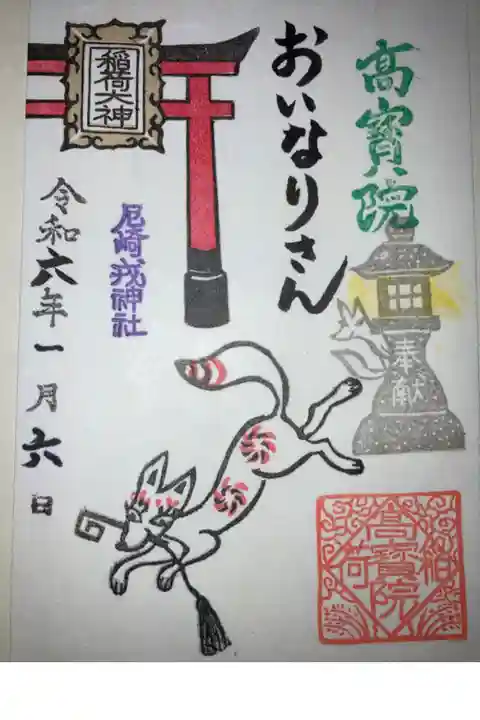 高寳院
おいなりさん
奉献
稲荷大神
尼崎戎神社
令和六年一月六日
稲荷
高寳院